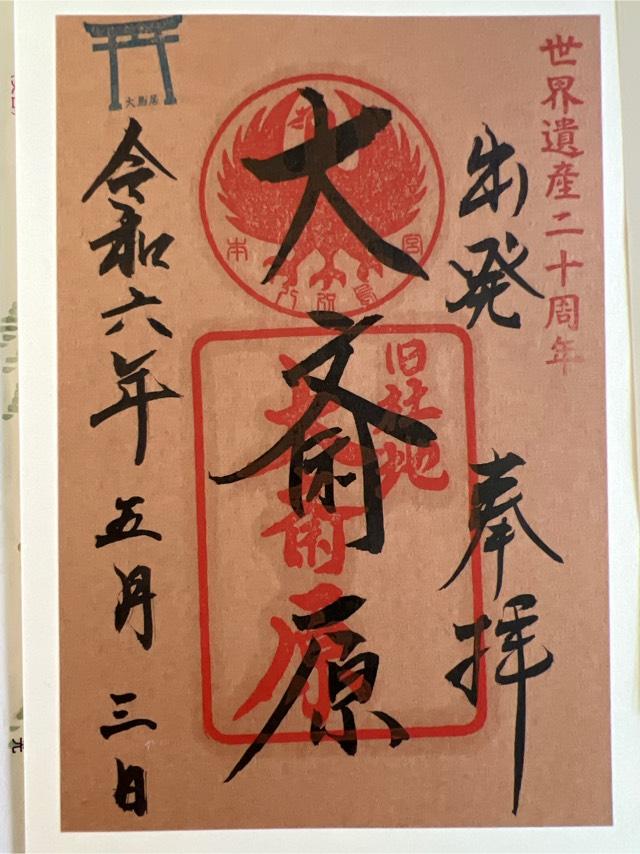 世界遺産二十周年
出発
奉拝
大斎原
旧社地
大斎原
大鳥居
令和六年五月三日